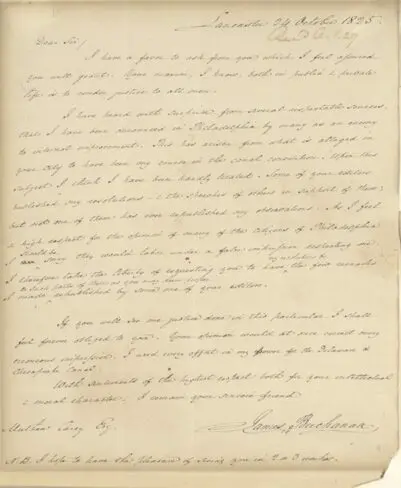 Lancaster 24 October 1825.
Dear Sir/
I have a favor to ask from you which I feel assured
you will grant. Your maxim, I know, both in public & private
life is to render justice to all men.
I have heard with surprise from several respectable sources
that I have been denounced in Philadelphia by many as an enemy
to internal improvement. This has arisen from what is alleged in
your city to have been my course in the canal convention. Upon this
subject I think I have been hardly treated. Some of your editors
published my resolutions & the speeches of others in support of them;
but not one of them has ever republished my observations. As I feel
a high respect for the opinion of many of the citizens of Philadelphia
I should be sorry they would labor under a false impression respecting me
I therefore take the liberty of requesting you to have the few remarks
or such parts of them as you may deem proper
I made republished by some one of your editors.
If you will see me justice done in this particular I shall
feel forever obliged to you. Your opinion would at once correct any
erroneous impression. I used every effort in my power for the Delaware &
Chesapeake Canal.
With sentiments of the highest respect both for your intellectual
& moral character, I remain your sincere friend
James Buchanan
Mathew Carey Esq.
N.B. I hope to have the pleasure of seeing you in 2 or 3 weeks.